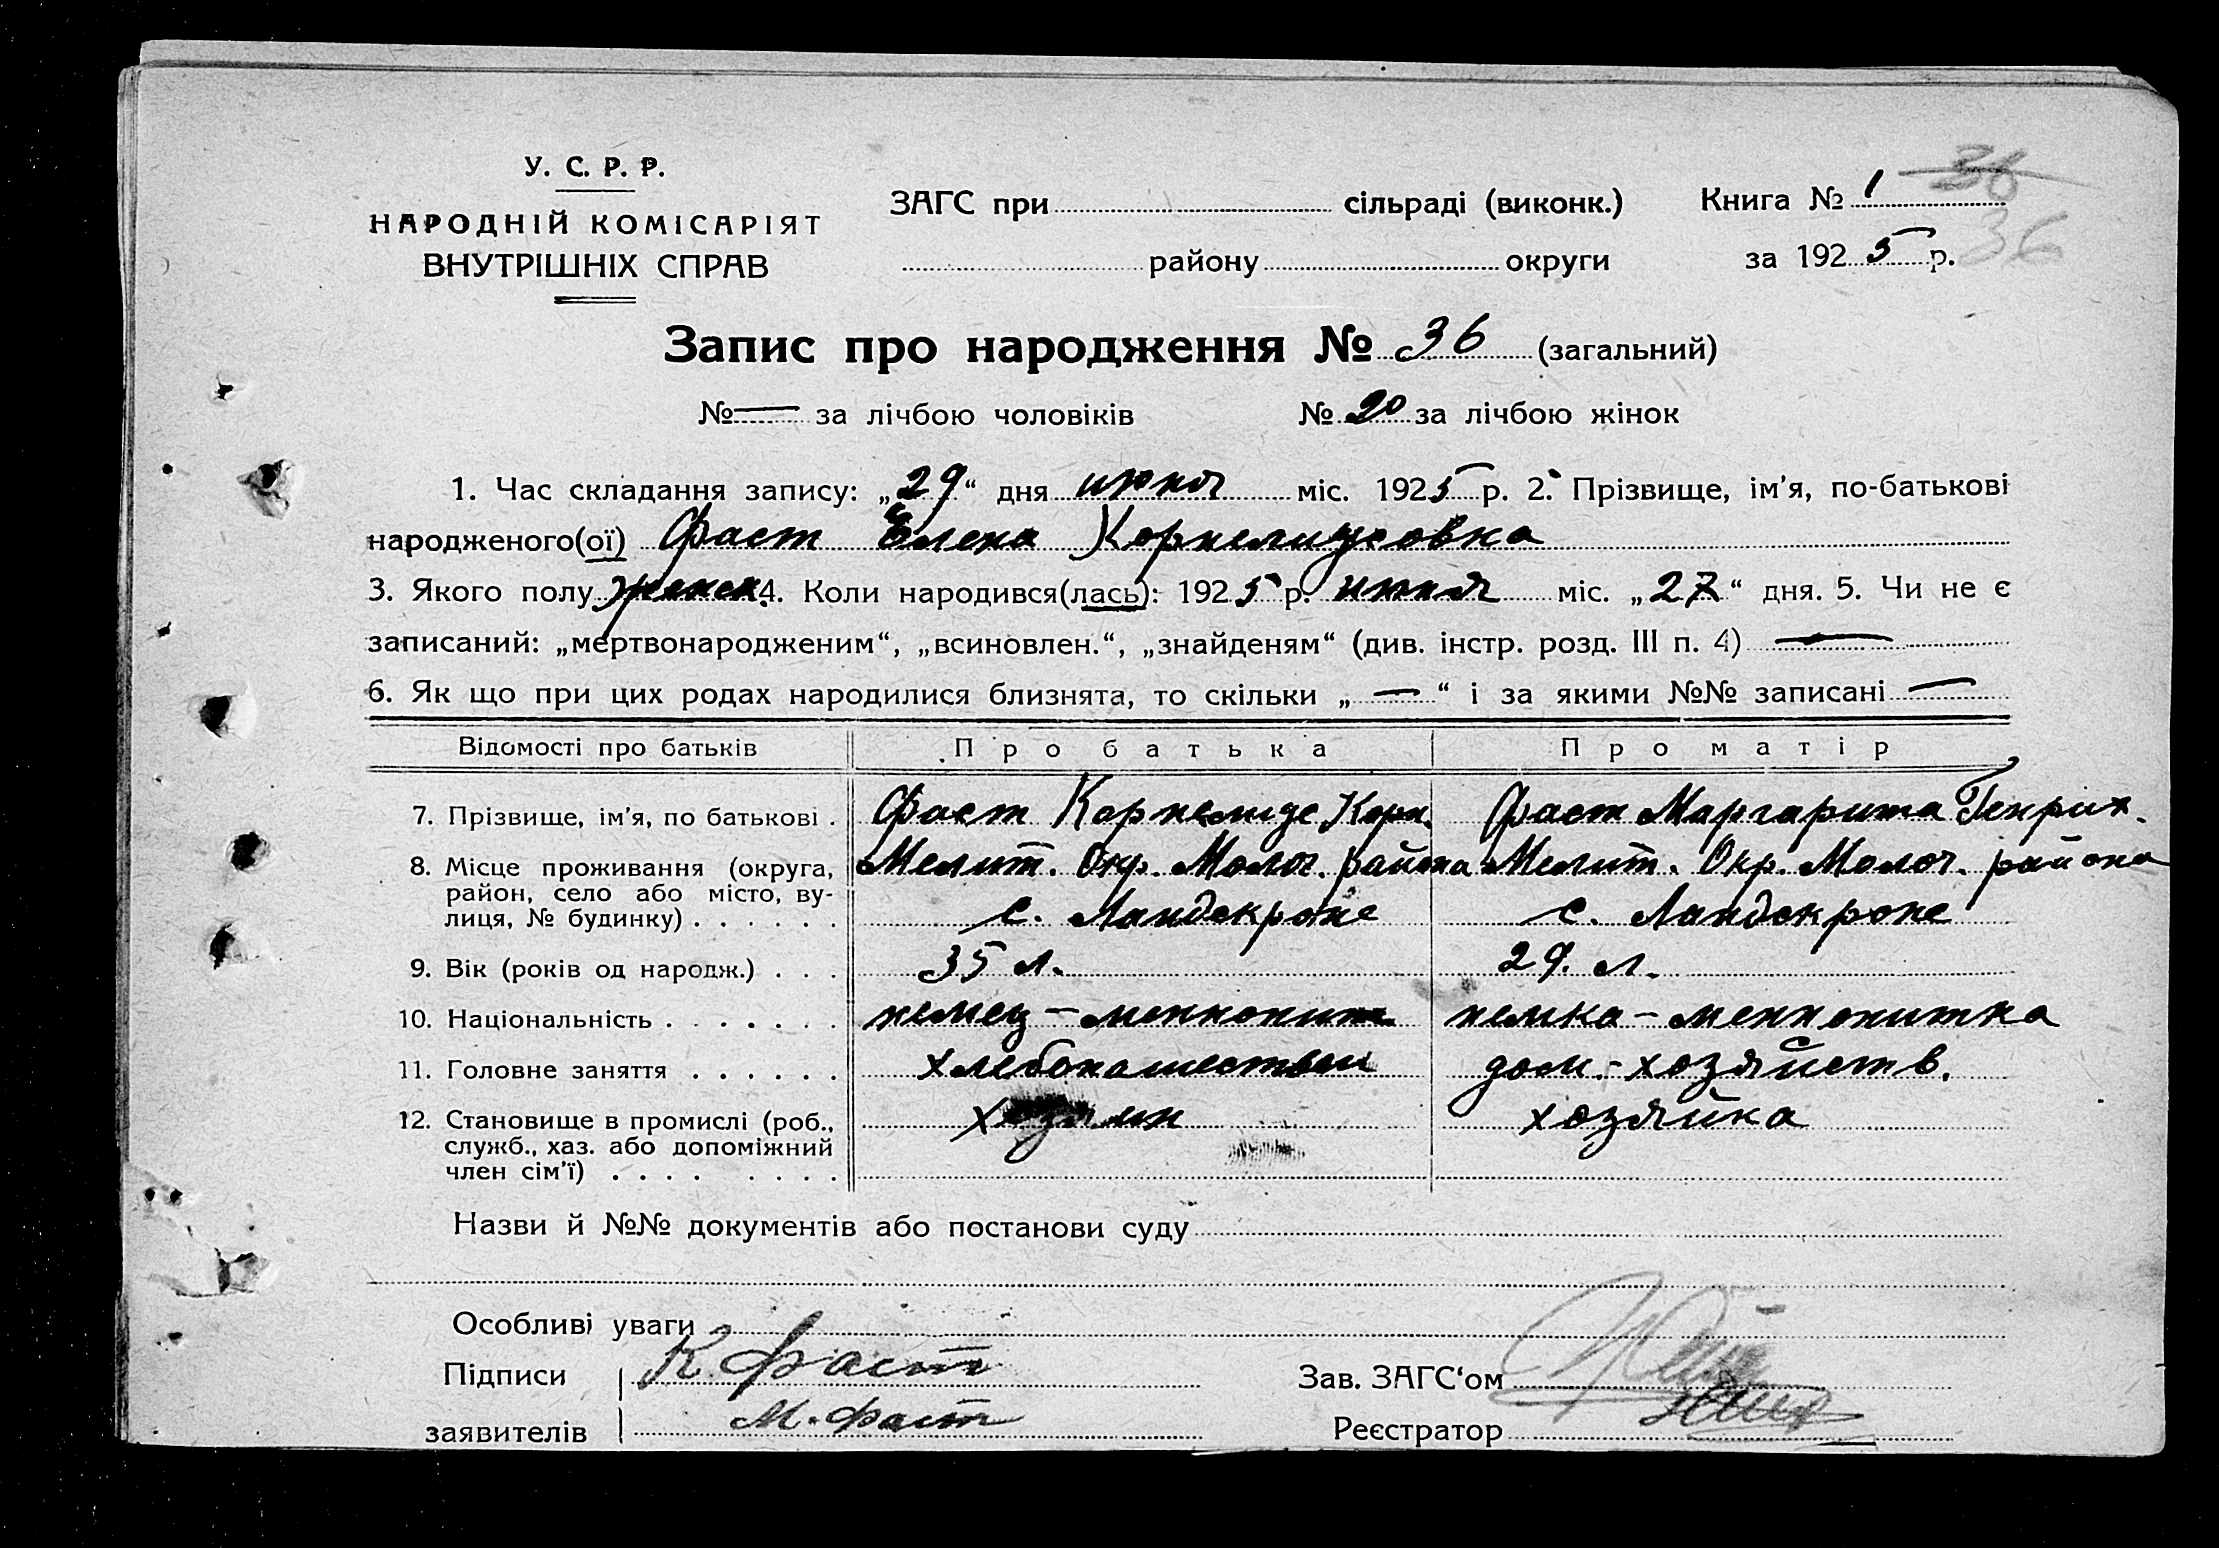 У. С. Р. Р.
НАРОДНІЙ КОМІСАРІЯТ
ВНУТРІШНІХ СПРАВ
ЗАГС при сільраді (виконк.)
району округи
Книга № 1 36
за 1925 р. 36
Запис про народження № 36 (загальний)
№ — за лічбою чоловіків № 20 за лічбою жінок
1. Час складання запису: „29“ дня июня міс. 1925 р. 2. Прізвище, ім’я, по-батькові
народженого(ої) Фаст Елена Корнелиусовна
3. Якого полу женск. 4. Коли народився(лась): 1925 р. июня міс. „27“ дня. 5. Чи не є
записаний: „мертвонародженим“, „всиновлен.“, „знайденям“ (див. інстр. розд. III п. 4) —
6. Як що при цих родах народилися близнята, то скільки „—“ і за якими №№ записані —
Відомості про батьків Про батька Про матір
7. Прізвище, ім’я, по батькові . Фаст Корнелиус Корн. Фаст Маргарита Генрих.
8. Місце проживання (округа, Мелит. Окр. Молоч. района Мелит. Окр. Молоч. района
район, село або місто, ву-
лиця, № будинку) . . . . . . с. Ландскроне с. Ландскроне
9. Вік (років од народж.) . . . 35 л. 29. л.
10. Національність . . . . . . . немец – меннонит немка – меннонитка
11. Головне заняття . . . . . . хлебопашеством дом. - хозяйств.
12. Становище в промислі (роб., хозяин хозяйка
служб., хаз. або допоміжний
член сім’ї) . . . . . . . .
Назви й №№ документів або постанови суду
Особливі уваги
Підписи К. Фаст Зав. ЗАГС‘ом
заявителів М. Фаст Реєстратор